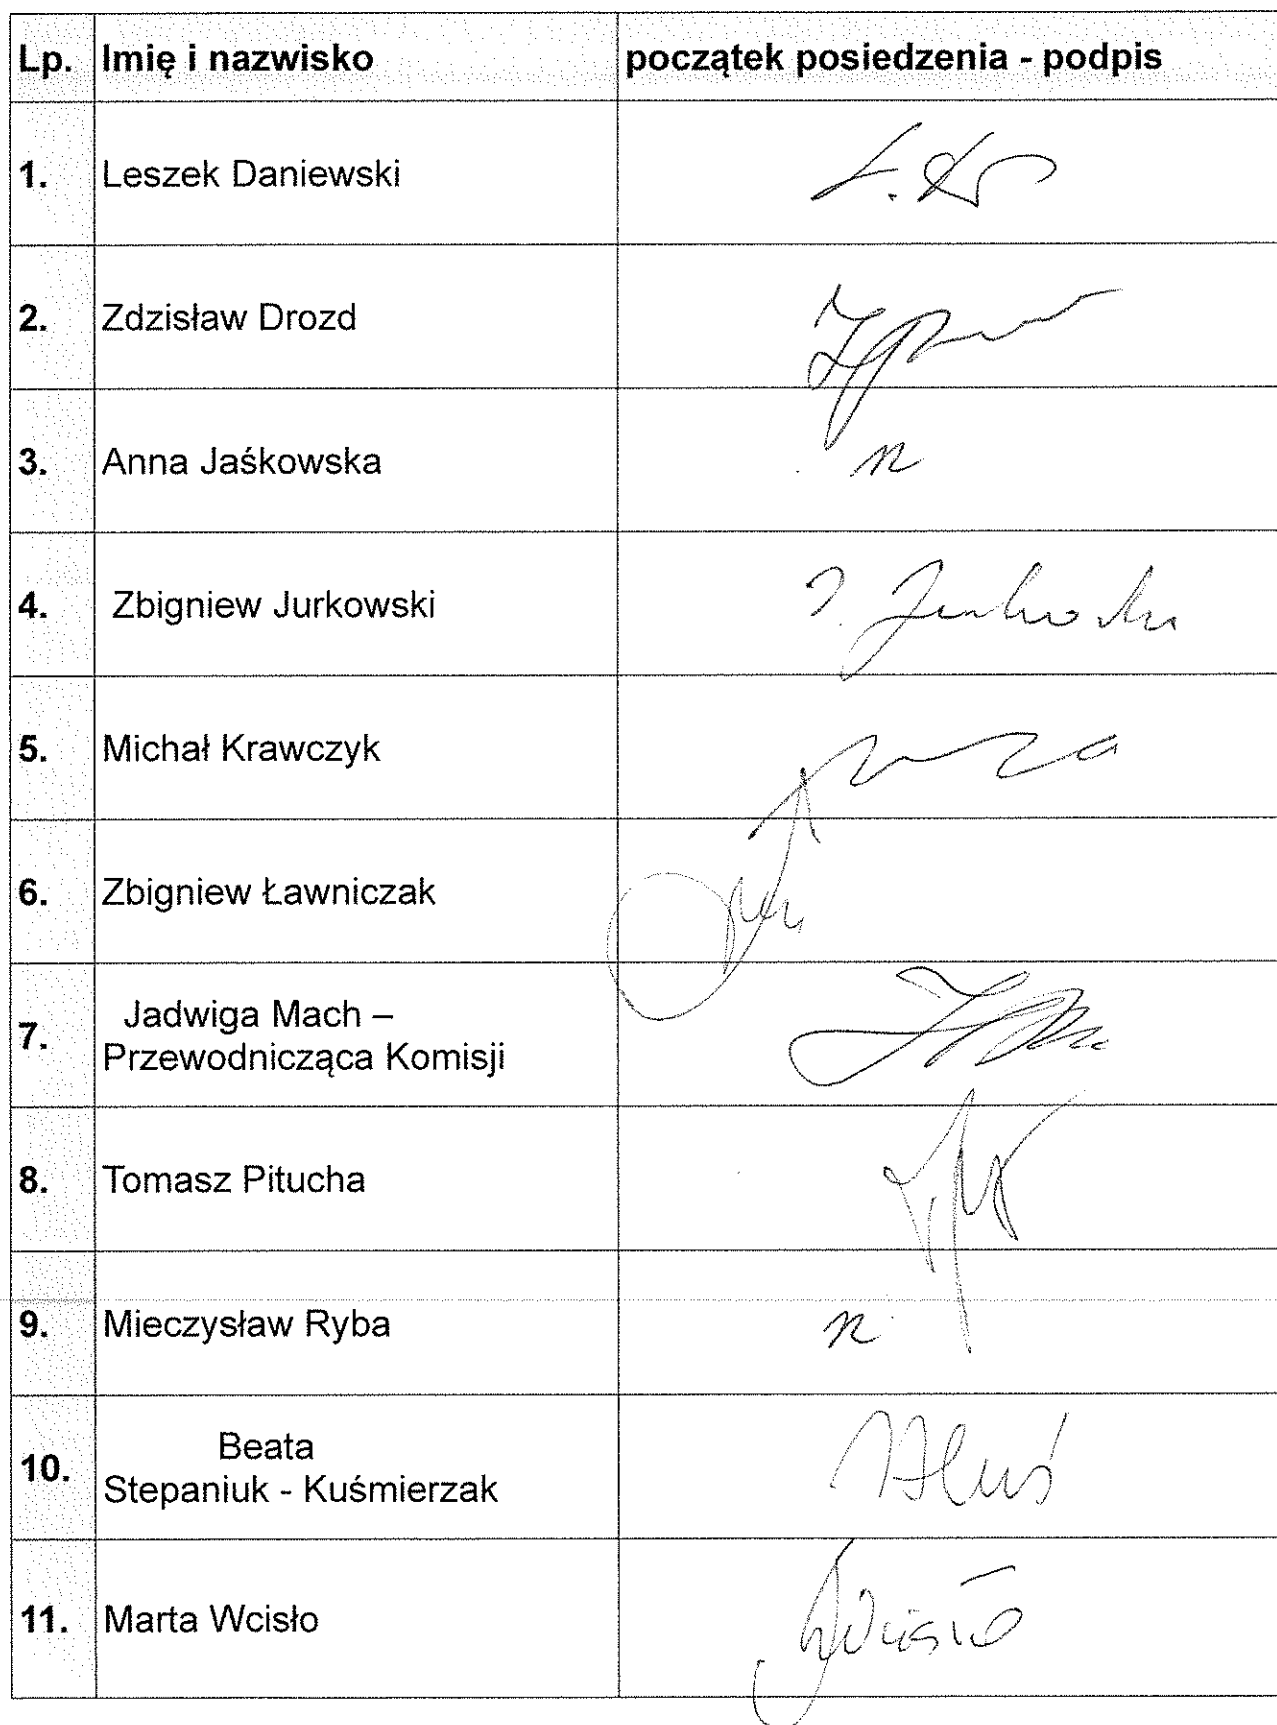 Lp. Imię i nazwisko początek posiedzenia - podpis
1. Leszek Daniewski
2. Zdzisław Drozd
3. Anna Jaśkowska n
4. Zbigniew Jurkowski
5. Michał Krawczyk
6. Zbigniew Ławniczak
7. Jadwiga Mach –
Przewodnicząca Komisji
8. Tomasz Pitucha
9. Mieczysław Ryba n
10. Beata
Stepaniuk - Kuśmierzak
11. Marta Wcisło